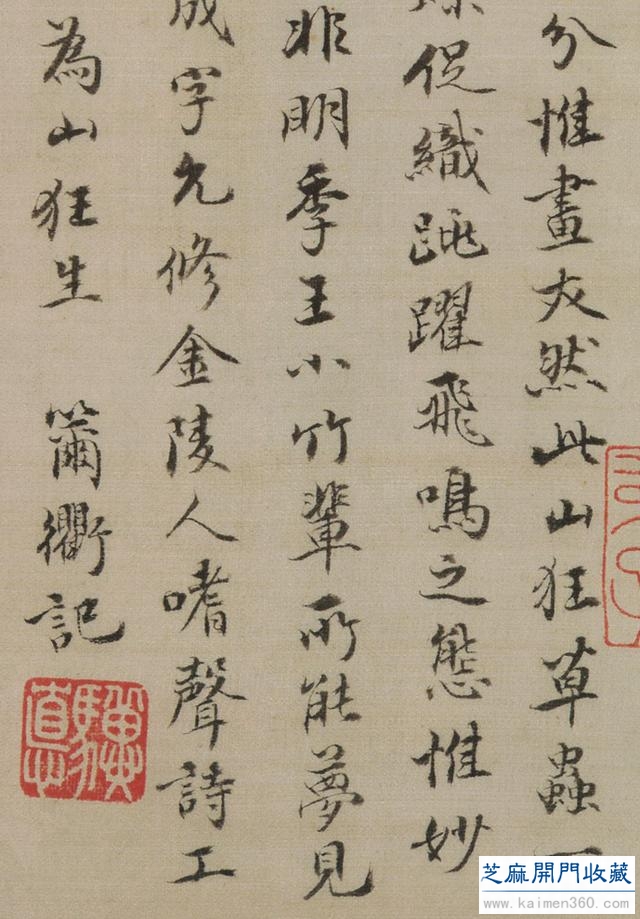 分惟畫亦然此山狂草蟲一
促織跳躍飛鳴之態惟妙
非明季王小竹輩所能夢見
成字允修金陵人嗜聲詩工
為山狂生 籋衢記
芝麻開門收藏
www.kaimen360.com